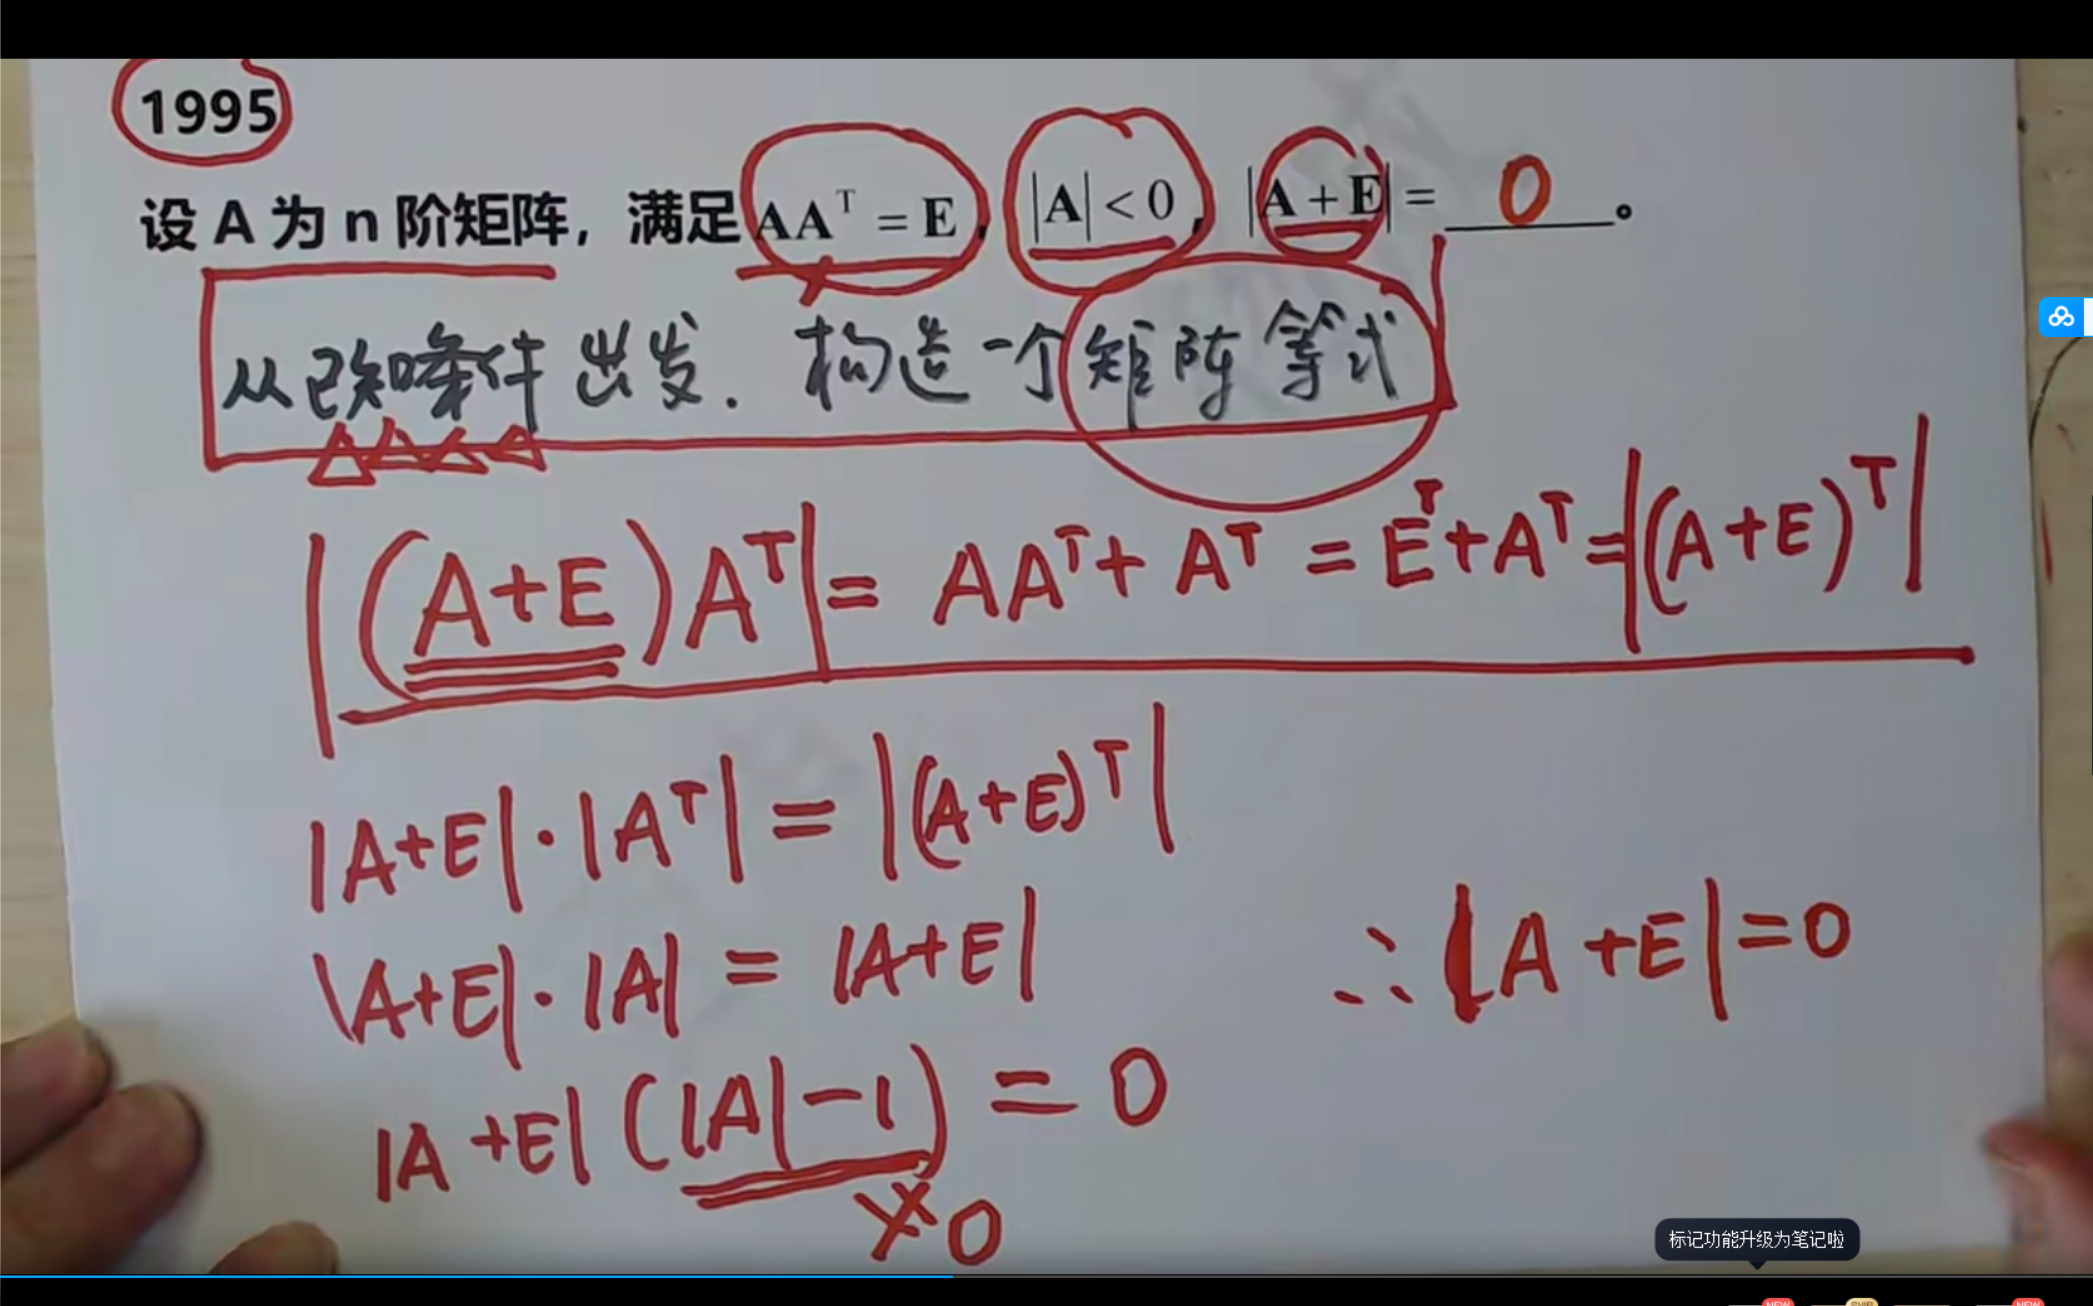 1995
设 A 为 n 阶矩阵，满足 AAᵀ = E，|A| < 0，|A + E| = 0。
从已知条件出发. 构造一个矩阵等式
|(A+E)Aᵀ| = AAᵀ + Aᵀ = Eᵀ + Aᵀ = |(A+E)ᵀ|
|A+E|·|Aᵀ| = |(A+E)ᵀ|
|A+E|·|A| = |A+E|
∴ |A+E| = 0
|A+E|(|A|-1) = 0
≠0
标记功能升级为笔记啦
NEW
SVIP
NEW